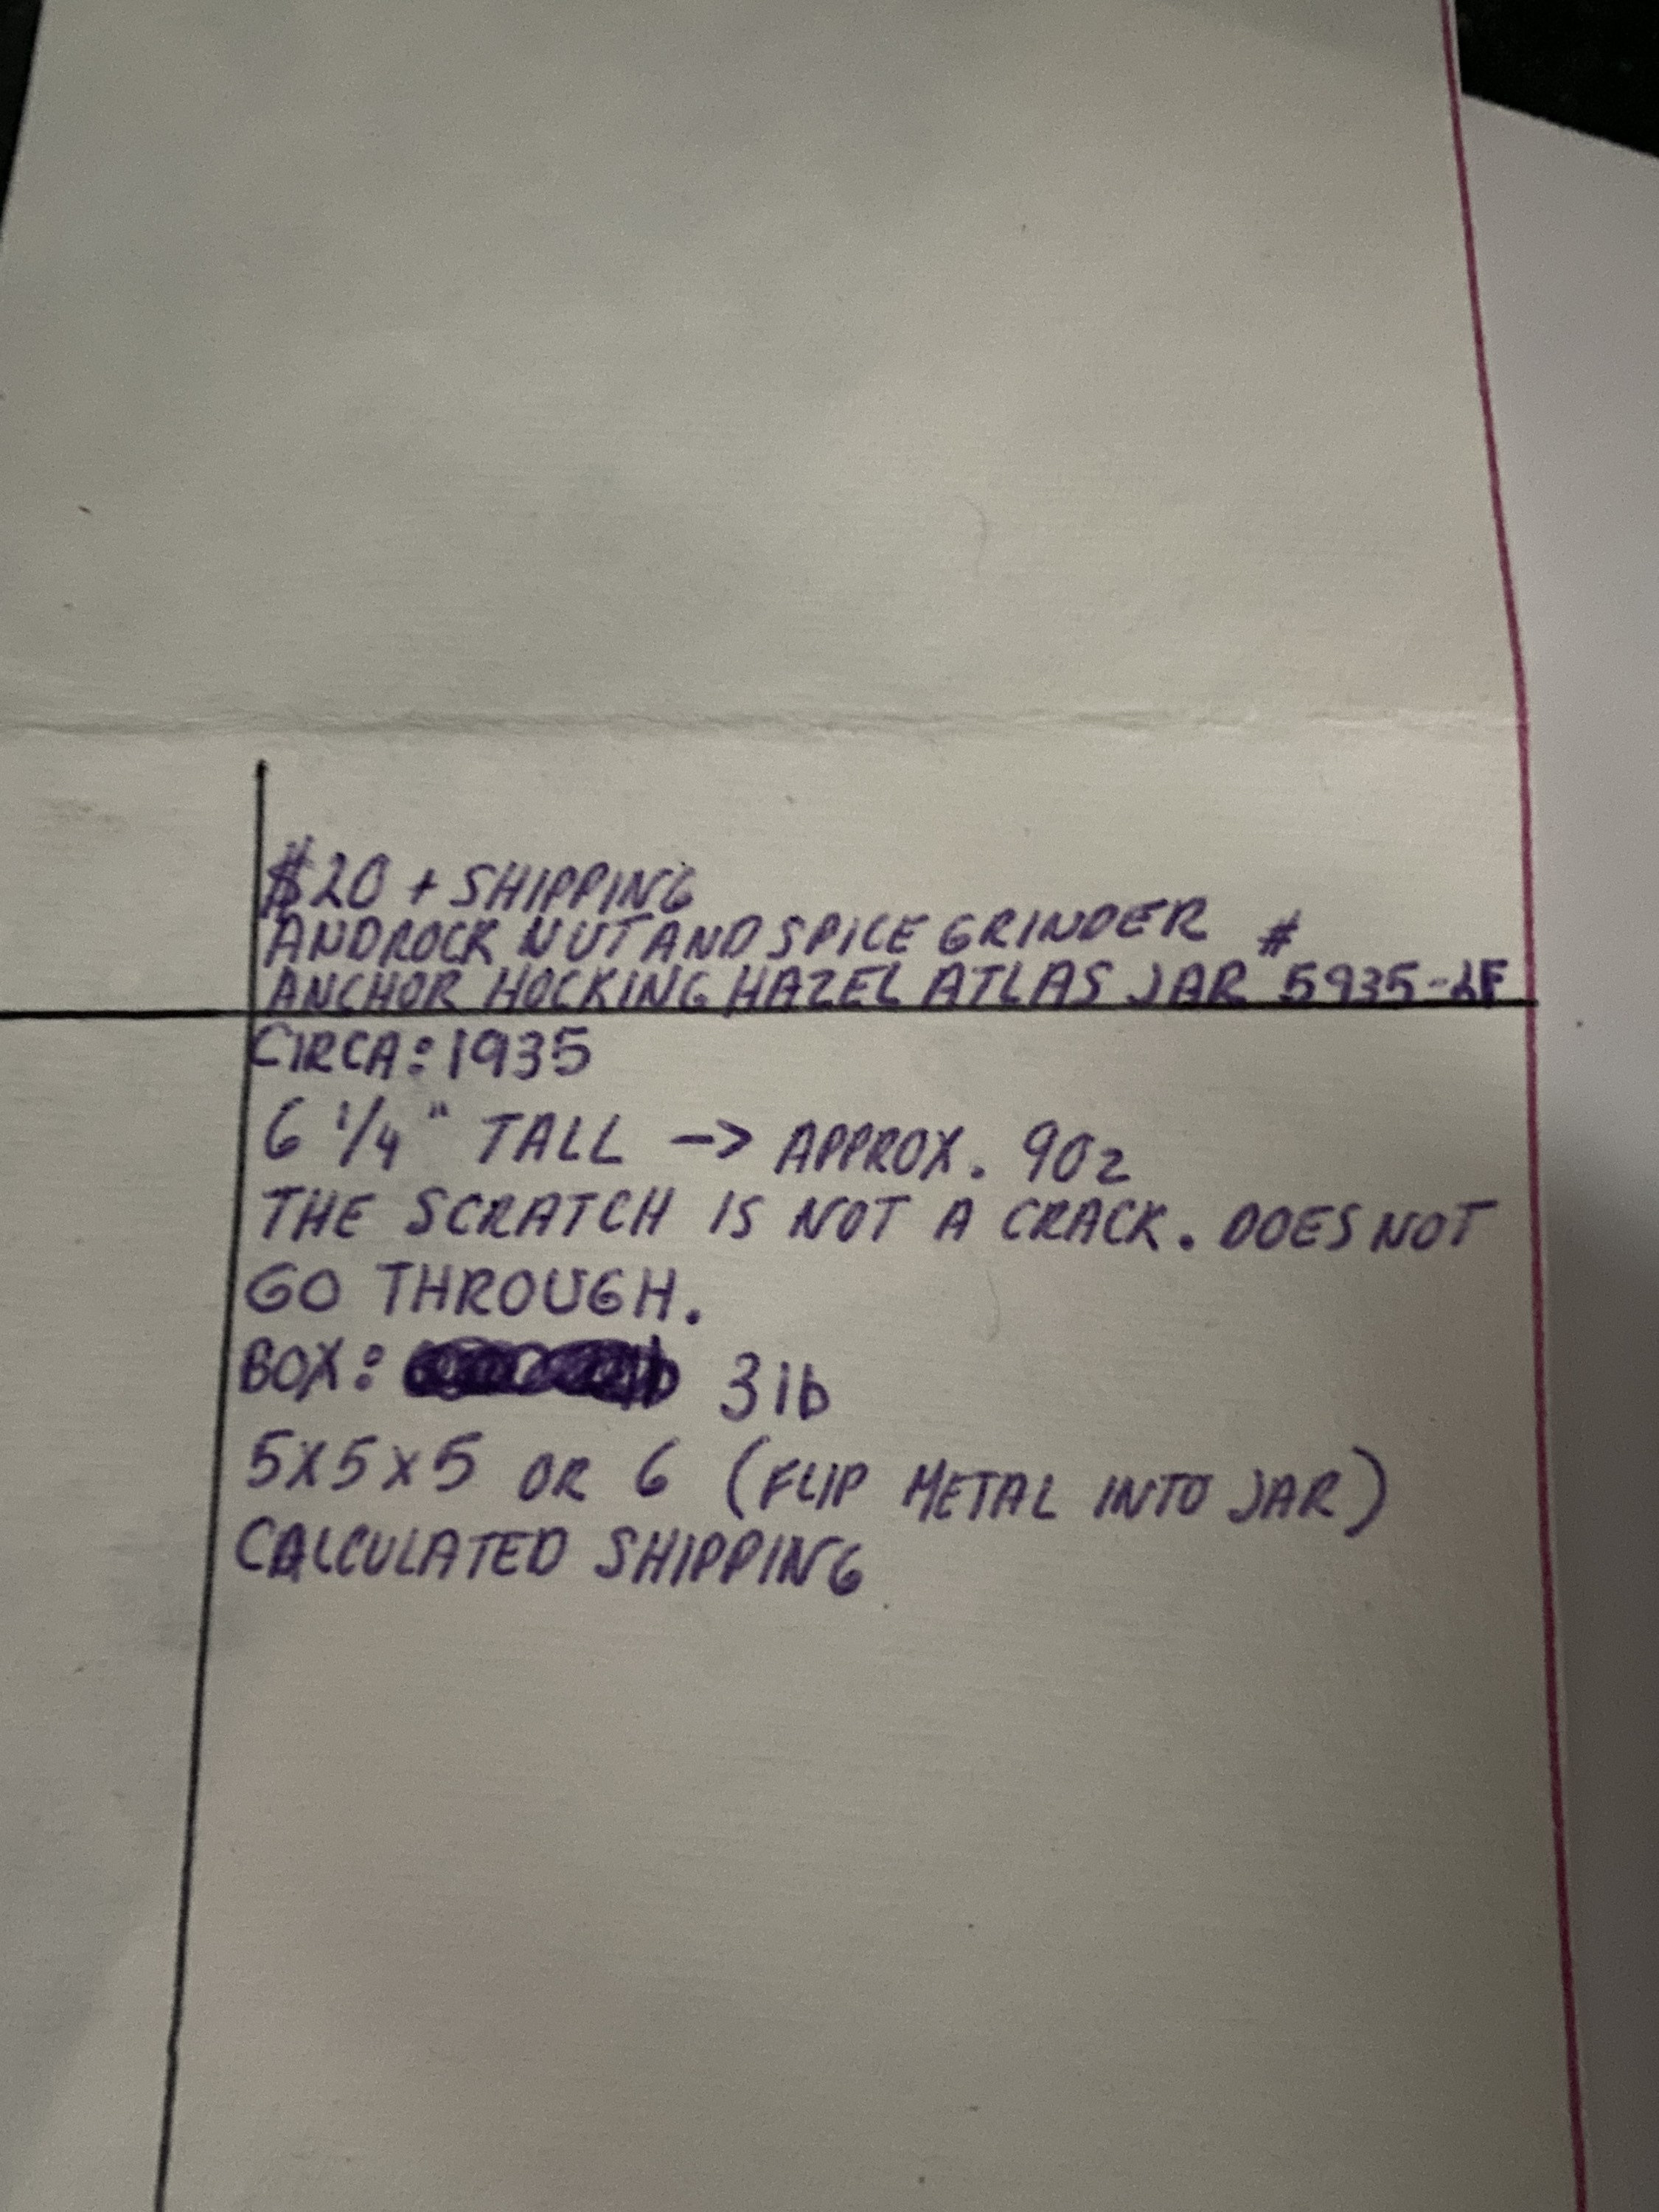 $20 + SHIPPING
ANDROCK NUT AND SPICE GRINDER #
ANCHOR HOCKING HAZEL ATLAS JAR 5935-2F
CIRCA: 1935
6 1/4" TALL -> APPROX. 9OZ
THE SCRATCH IS NOT A CRACK. DOES NOT
GO THROUGH.
BOX: 3lb
5x5x5 OR 6 (FLIP METAL INTO JAR)
CALCULATED SHIPPING